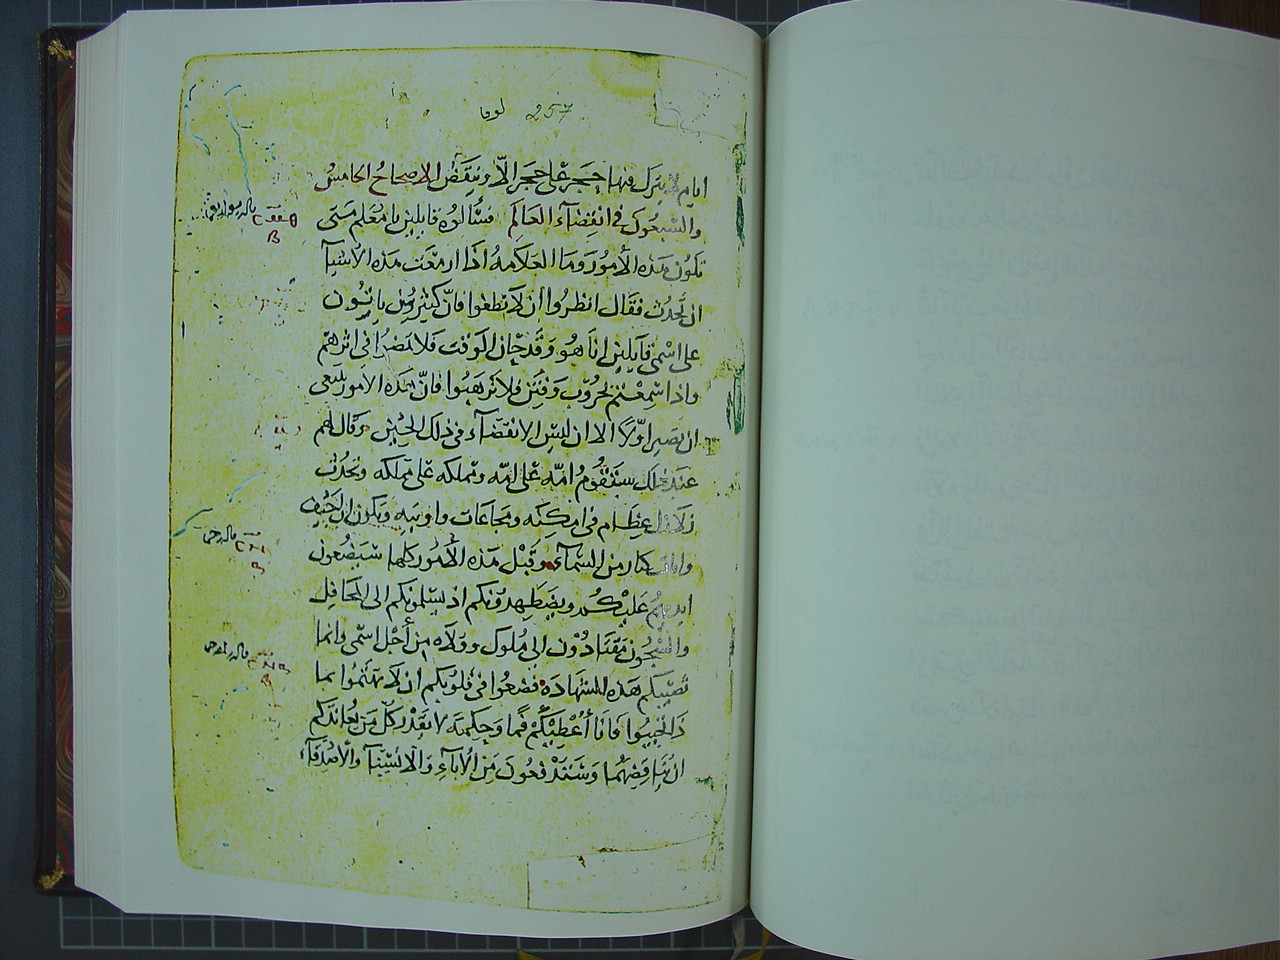 257 لوقا
ايام لا يترك فيها حجر على حجر الا وينقض الاصحاح الخامس
والسبعون في انقضآء العالم فسألوه قايلين يا معلم متى
تكون هذه الأمور وما العلامه اذا ازمعت هذه الاشيآ
ان تحدث فقال انظروا ان لا تطغوا فانّ كثيرين ياتون
على اسمي قآيلين انا هو وقد حان الوقت فلا تمضوا في اثرهم
واذا سمعتم بحروب وفتن فلا ترهبوا فانّ هذه الامور ينبغي
ان تصير اوّلاً الا ان ليس الانقضآء في ذلك الحين وقال لهم
عند ذلك ستقوم امّه على امّه ومملكه على مملكه وتحدث
زلازل عظام في امكنه ومجاعات واوبيه وتكون اراجيف
وايات كبار من السمآء وقبل هذه الأمور كلها سيضعون
ايديهم عليكم ويضطهدونكم اذ يسلمونكم الى المحافل
والسجون مقتادون الى ملوك وولاه من أجل اسمي وانما
تصيبكم هذه للشهاده فضعوا في قلوبكم ان لا تهتموا بما
ذا تجيبوا فانا أعطيكم فما وحكمة لا يقدر كلّ من يعاندكم
ان يناقضهما وستدفعون من الأبآء والانسبآ والأصدقآء